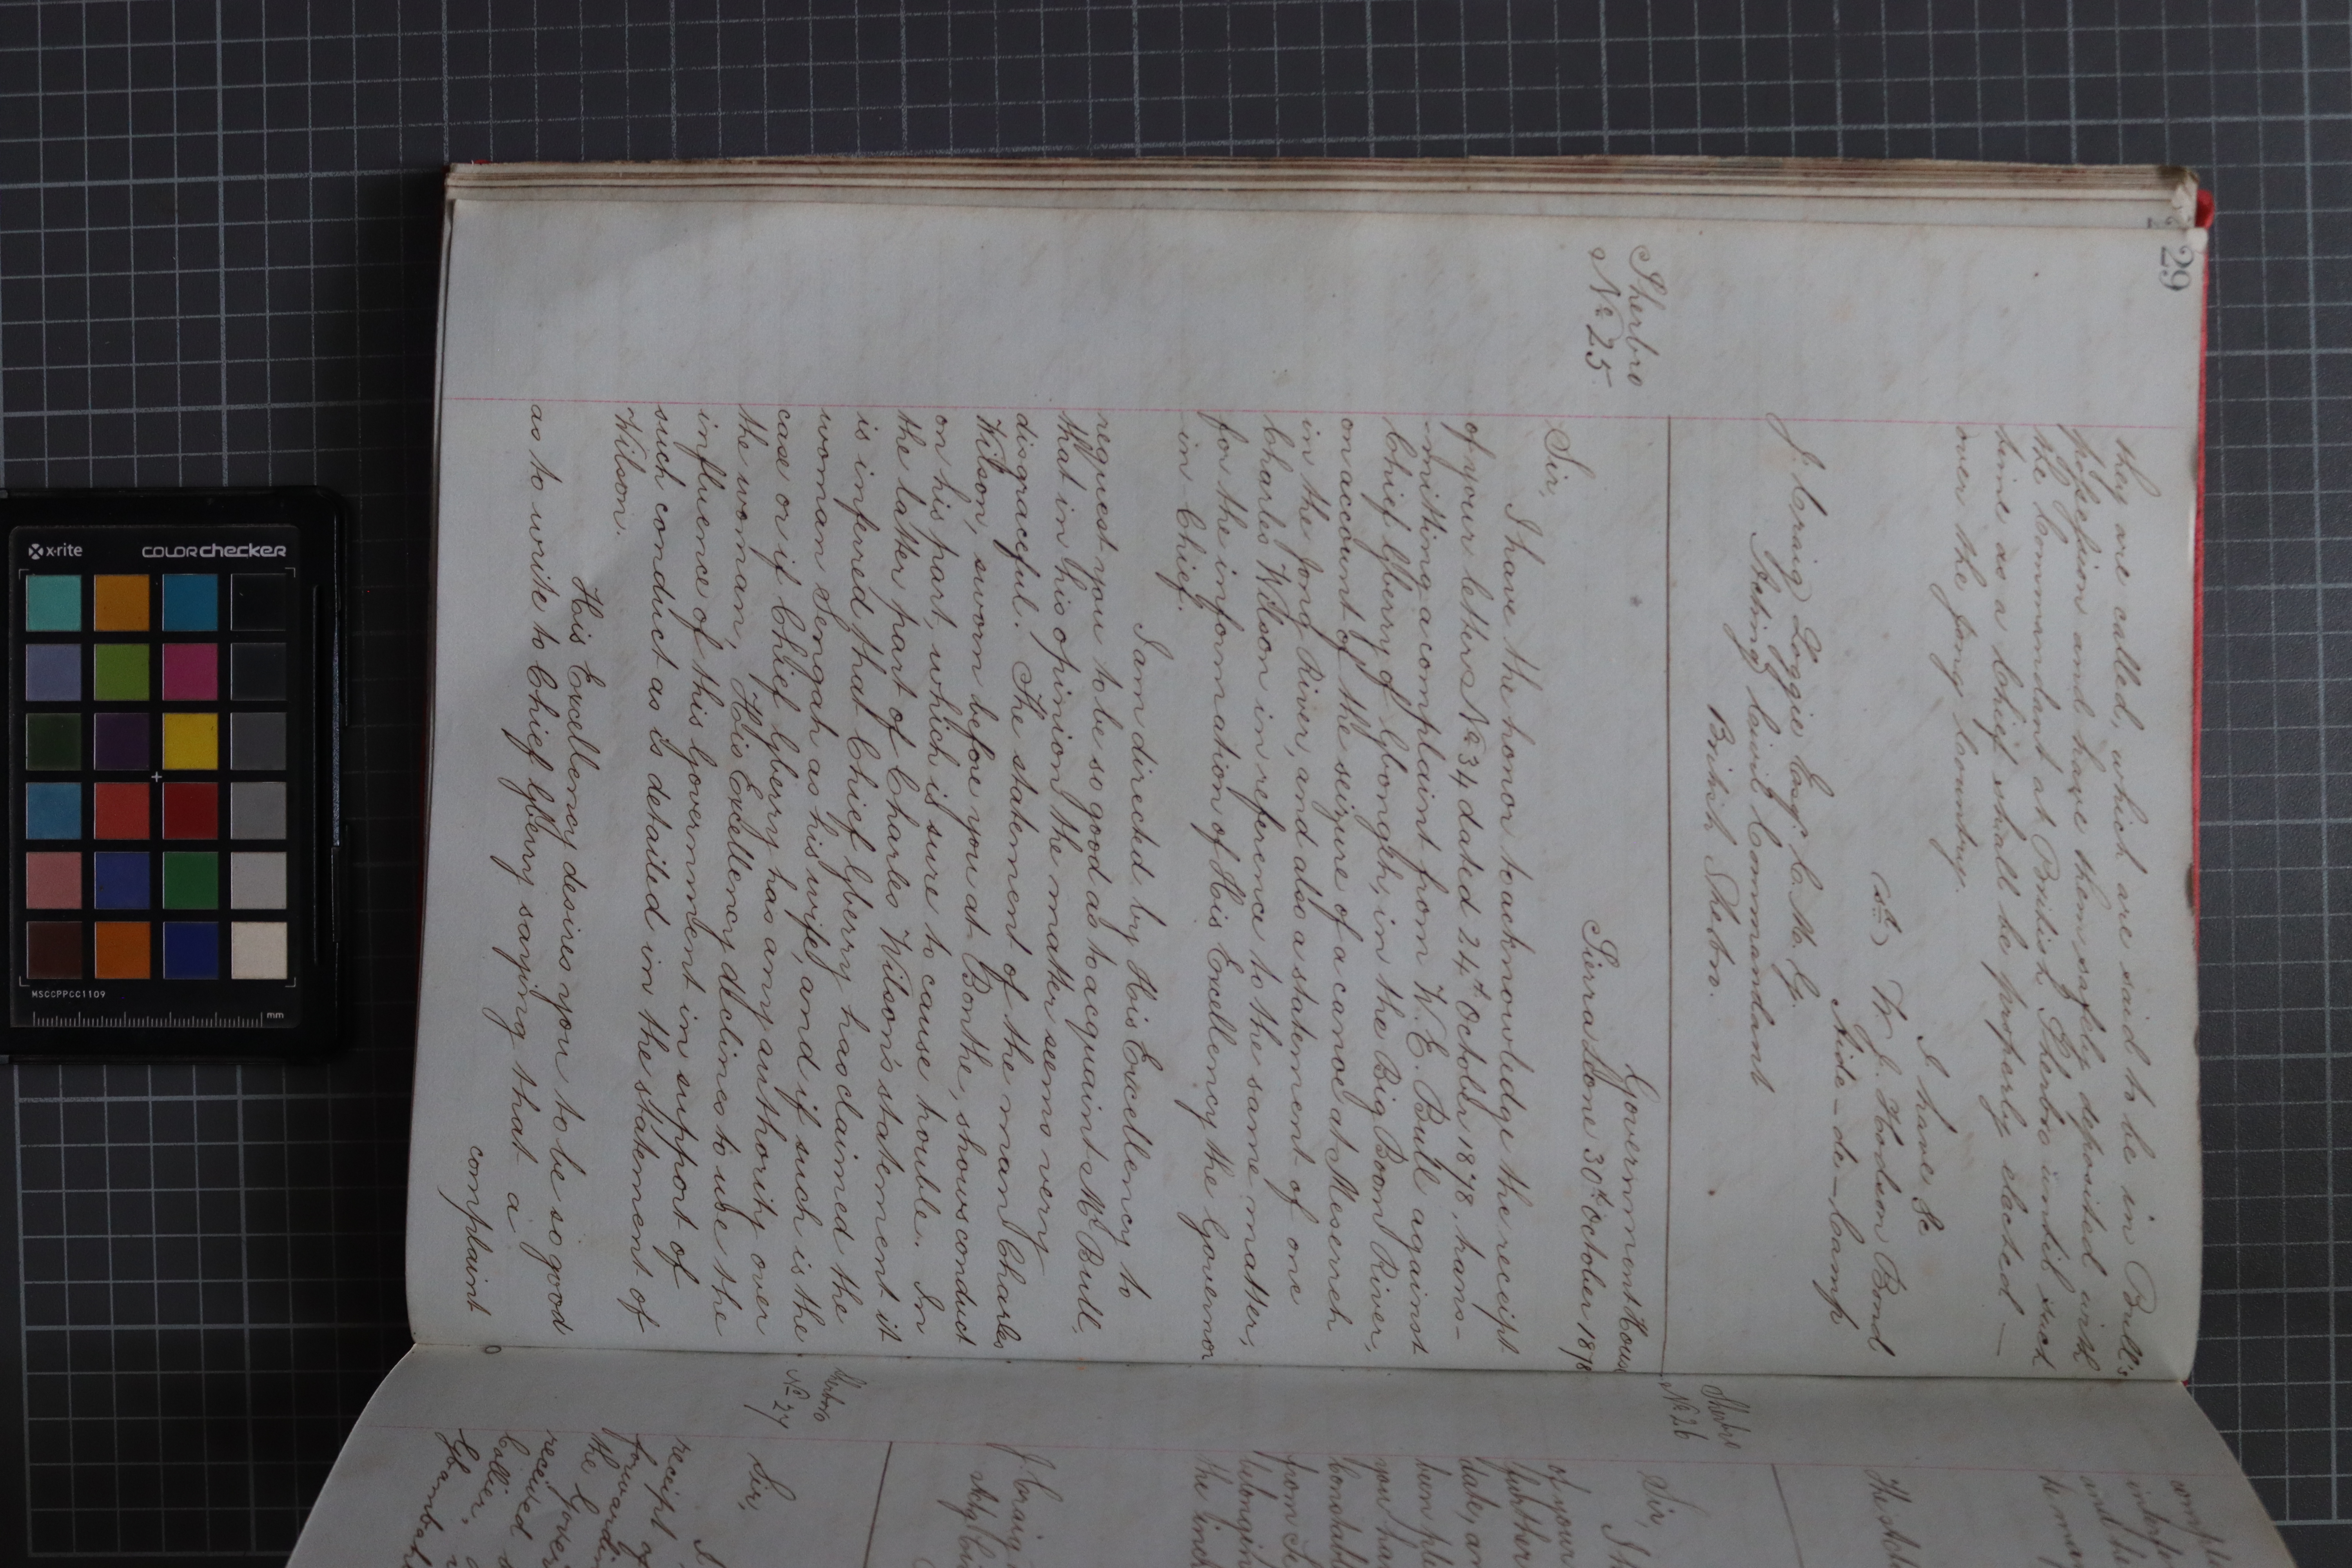 29
they are called, which are said to be in Bull's
possession and have them safely deposited with
the Commandant at British Sherbro until such
time as a Chief shall be properly elected —
over the Jong Country.
I have &c
W. J. Hodson Bond
Aide-de-Camp
J. Craig Loggie Esqr. C. M. G.
Acting Civil Commandant
British Sherbro.
Sherbro
No 25
Government House
Sierra Leone 30th October 1878
Sir,
I have the honor to acknowledge the receipt
of your letters No 34 dated 24th October 1878, trans-
mitting a complaint from W. E. Bull against
Chief Gberry of Gbongh, in the Big Boom River,
on account of the seizure of a canoe at Meserreh
in the Jong River, and also a statement of one
Charles Wilson in reference to the same matter,
for the information of His Excellency the Governor
in Chief.
I am directed by His Excellency to
request you to be so good as to acquaint Mr Bull,
that in his opinion the matter seems very
disgraceful. The statement of the man Charles
Wilson, sworn before you at Bonthe, shows conduct
on his part, which is sure to cause trouble. In
the latter part of Charles Wilson's statement it
is inferred that Chief Gberry has claimed the
woman Sengah as his wife, and if such is the
case or if Chief Gberry has any authority over
the woman, His Excellency declines to use the
influence of this Government in support of
such conduct as is detailed in the statement of
Wilson.
His Excellency desires you to be so good
as to write to Chief Gberry saying that a
complaint
Sherbro
No 26
Sir,
I h
of your
further
date, an
been pl
you ha
from S
belongin
the int
J Craig
Sherbro
No 27
Sir,
I
receipt of
forwardin
the Gover
received
x-rite
COLORchecker
MSCCPPCC1109
mm